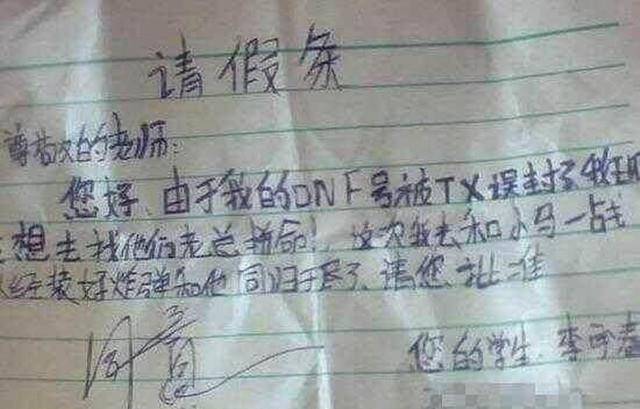 请假条
尊敬的老师:
您好,由于我的DNF号被TX误封了我
想去找他们老总拼命!这次我去和小马一战
经装好炸弹和他同归于尽了,请您批准
同意
您的学生:李